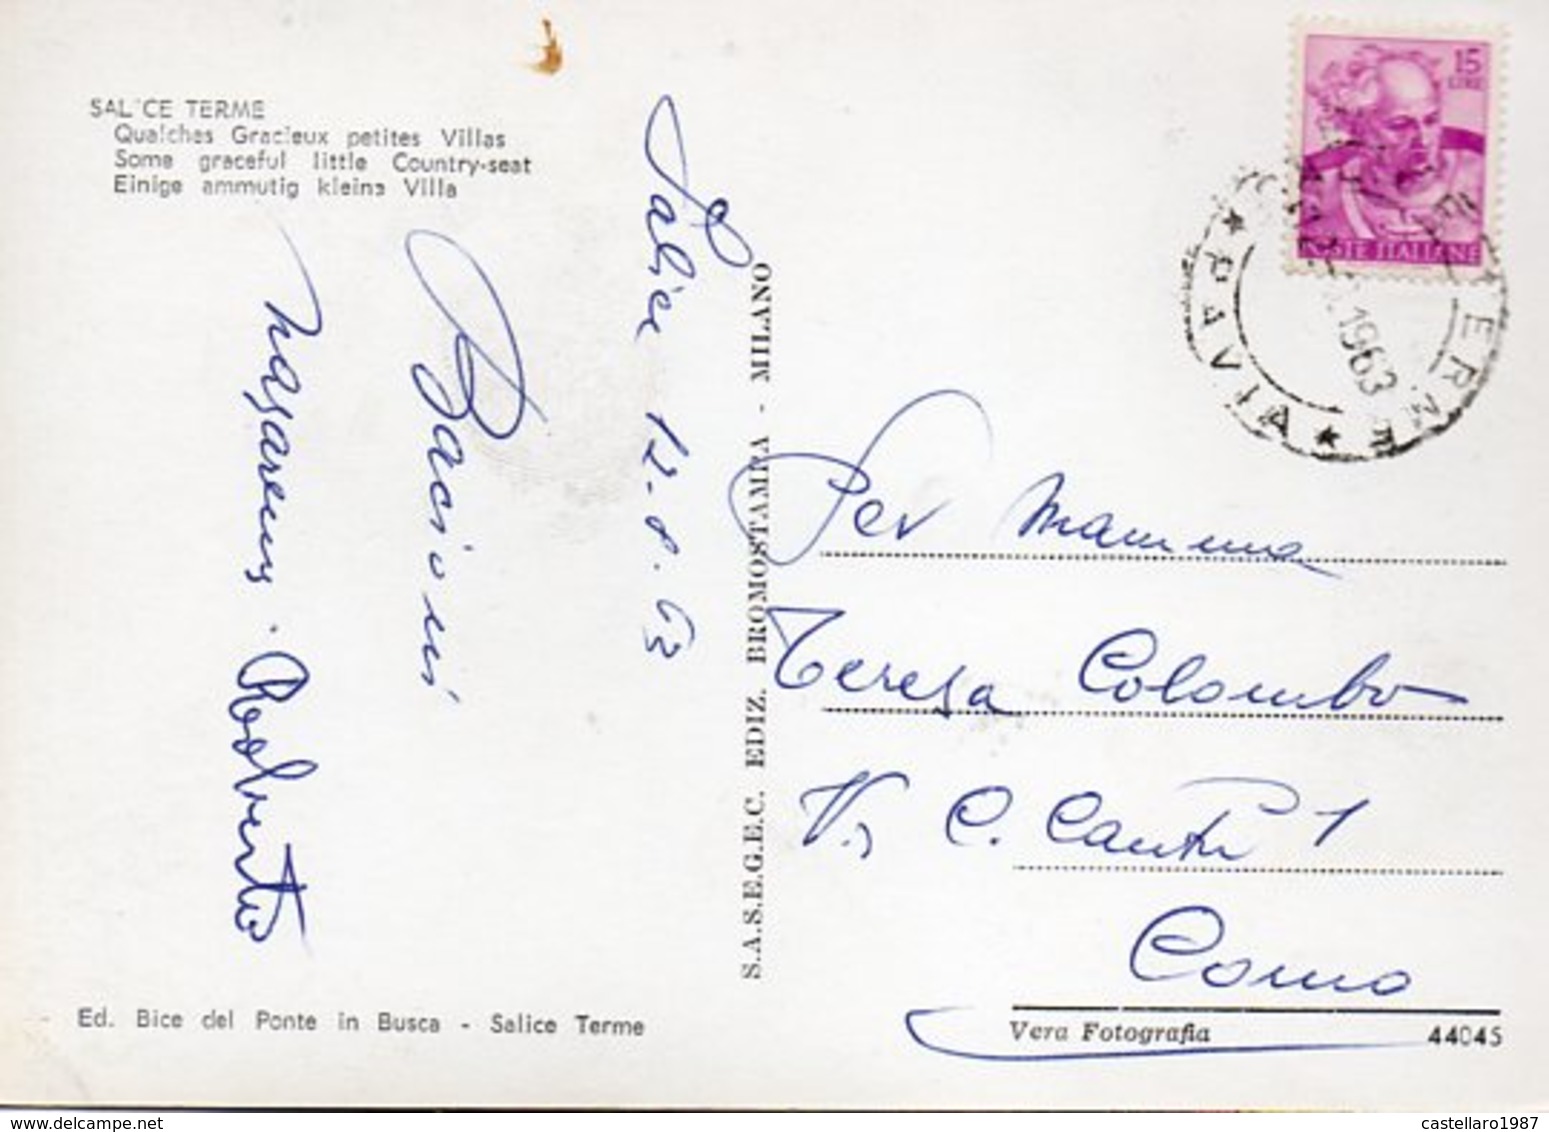 SALICE TERME
Qualches Gracieux petites Villas
Some graceful little Country-seat
Einige ammutig kleine Villa
Salice 12.8.63
Bacioni
Roberto
Ed. Bice del Ponte in Busca - Salice Terme
S.A.S.E.G.E.C. EDIZ. BROMOSTAMPA - MILANO
15
LIRE
POSTE ITALIANE
TERME
1963
* PAVIA *
Per Mamma
Teresa Colombo
V. C. Cantù 1
Como
Vera Fotografia
44045
castellaro1987